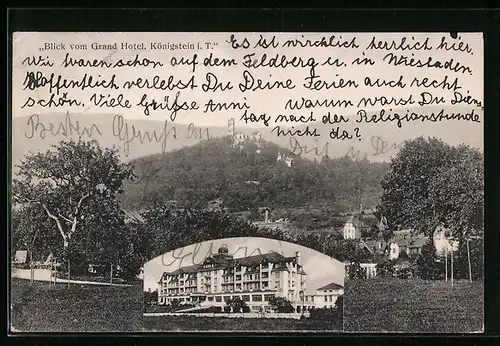 „Blick vom Grand Hotel, Königstein i. T.“
Es ist wirchlich herrlich hier.
Wir waren schon auf dem Feldberg u. in Wiesbaden.
Hoffentlich verlebst Du Deine Ferien auch recht
schön. Viele Grüsse Anni
Warum warst Du Diens
tag nach der Religionsstunde
nicht da?
Besten Gruß